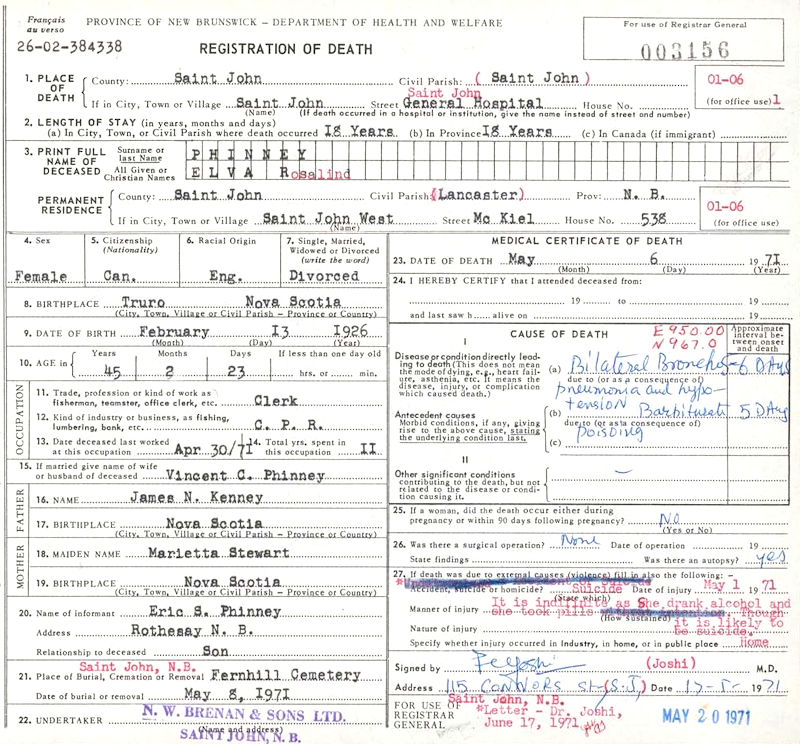 Français
au verso
26-02-384338
PROVINCE OF NEW BRUNSWICK – DEPARTMENT OF HEALTH AND WELFARE
REGISTRATION OF DEATH
For use of Registrar General
003156
1. PLACE OF DEATH
County: Saint John Civil Parish: ( Saint John )
Saint John
If in City, Town or Village Saint John Street General Hospital House No.
(Name) (If death occurred in a hospital or institution, give the name instead of street and number)
01-06
(for office use) 1
2. LENGTH OF STAY (in years, months and days)
(a) In City, Town, or Civil Parish where death occurred 18 Years (b) In Province 18 Years (c) In Canada (if immigrant)
3. PRINT FULL NAME OF DECEASED
Surname or last Name PHINNEY
All Given or Christian Names ELVA Rosalind
PERMANENT RESIDENCE
County: Saint John Civil Parish: (Lancaster) Prov: N. B.
If in City, Town or Village Saint John West Street Mc Kiel House No. 538
(Name)
01-06
(for office use)
4. Sex
Female
5. Citizenship (Nationality)
Can.
6. Racial Origin
Eng.
7. Single, Married, Widowed or Divorced (write the word)
Divorced
8. BIRTHPLACE Truro Nova Scotia
(City, Town, Village or Civil Parish - Province or Country)
9. DATE OF BIRTH February 13 1926
(Month) (Day) (Year)
10. AGE in
Years Months Days If less than one day old
45 2 23 hrs. or min.
OCCUPATION
11. Trade, profession or kind of work as fisherman, teamster, office clerk, etc. Clerk
12. Kind of industry or business, as fishing, lumbering, bank, etc. C. P. R.
13. Date deceased last worked at this occupation Apr 30/71
14. Total yrs. spent in this occupation 11
15. If married give name of wife or husband of deceased Vincent C. Phinney
FATHER
16. NAME James N. Kenney
17. BIRTHPLACE Nova Scotia
(City, Town, Village or Civil Parish - Province or Country)
MOTHER
18. MAIDEN NAME Marietta Stewart
19. BIRTHPLACE Nova Scotia
(City, Town, Village or Civil Parish - Province or Country)
20. Name of informant Eric S. Phinney
Address Rothesay N. B.
Relationship to deceased Son
Saint John, N.B.
21. Place of Burial, Cremation or Removal Fernhill Cemetery
Date of burial or removal May 8, 1971
22. UNDERTAKER N. W. BRENAN & SONS LTD.
(Name and address)
SAINT JOHN, N. B.
MEDICAL CERTIFICATE OF DEATH
23. DATE OF DEATH May 6 1971
(Month) (Day) (Year)
24. I HEREBY CERTIFY that I attended deceased from:
19 to 19
and last saw h alive on 19
I CAUSE OF DEATH
E950.00
N967.0
Approximate interval between onset and death
Disease or condition directly leading to death (This does not mean the mode of dying, e.g., heart failure, asthenia, etc. It means the disease, injury, or complication which caused death.)
(a) Bilateral Broncho- 6 Days
due to (or as a consequence of)
pneumonia and hypotension
Antecedent causes
Morbid conditions, if any, giving rise to the above cause, stating the underlying condition last.
(b) Barbiturate 5 Days
due to (or as a consequence of)
(c) poisoning
II
Other significant conditions contributing to the death, but not related to the disease or condition causing it.
25. If a woman, did the death occur either during pregnancy or within 90 days following pregnancy? NO
(Yes or No)
26. Was there a surgical operation? None Date of operation 19
State findings Was there an autopsy? yes
27. If death was due to external causes (violence) fill in also the following: -
Accident, suicide or homicide? Suicide Date of injury May 1 1971
(State which)
Manner of injury It is indifinite as She drank alcohol and
she took pills Though
(How sustained)
Nature of injury it is likely to
be suicide.
Specify whether injury occurred in Industry, in home, or in public place Home
Signed by (Joshi) M.D.
Address 115 Connors St (S.J.) Date 1971
FOR USE OF REGISTRAR GENERAL
Saint John, N.B.
*Letter - Dr. Joshi,
June 17, 1971
MAY 20 1971